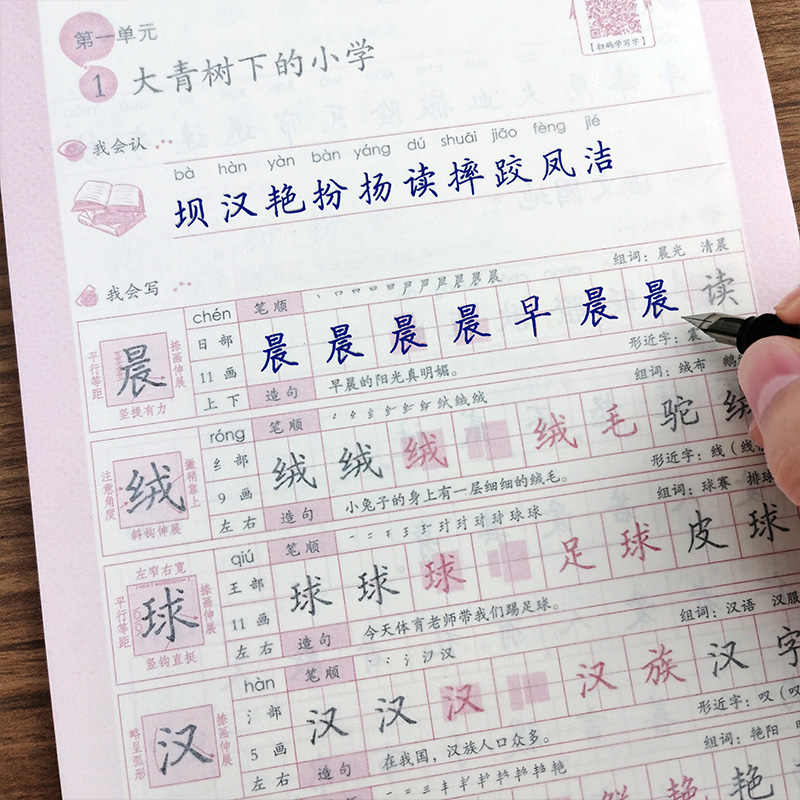 第一单元
【扫码学写字】
1 大青树下的小学
我会认
bà hàn yàn bàn yáng dú shuāi jiāo fèng jié
坝汉艳扮扬读摔跤凤洁
我会写
组词：晨光 清晨
chén 笔顺
平行等距 晨 捺画伸展
竖提有力
日部
11画
上下
晨晨晨晨早晨晨读
形近字：
造句 早晨的阳光真明媚。
组词：绒布
róng 笔顺
注意角度 绒
斜钩伸展
纟部
9画
左右
绒绒绒绒毛驼绒
形近字：线
造句 小兔子的身上有一层细细的绒毛。
组词：球赛 排球
qiú 笔顺
左窄右宽
平行等距 球 捺画伸展
竖钩直挺
王部
11画
左右
球球球足球皮球
造句 今天体育老师带我们踢足球。
组词：汉语 汉服
hàn 笔顺
略呈弧形 汉 捺画伸展
氵部
5画
左右
汉汉汉汉族汉字
形近字：叹
造句 在我国，汉族人口众多。
组词：艳阳
艳艳